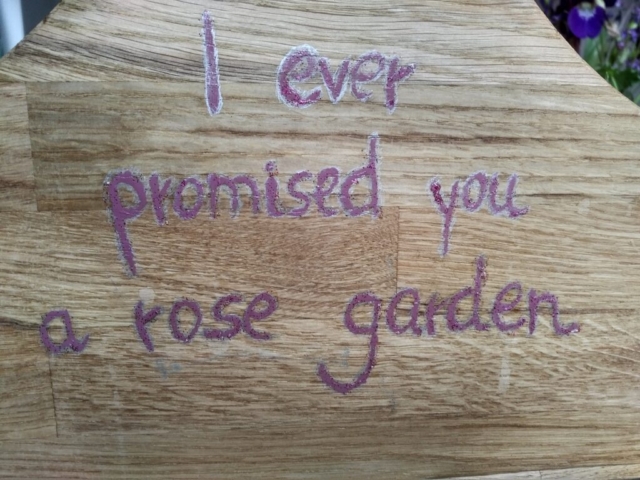 I ever
promised you
a rose garden